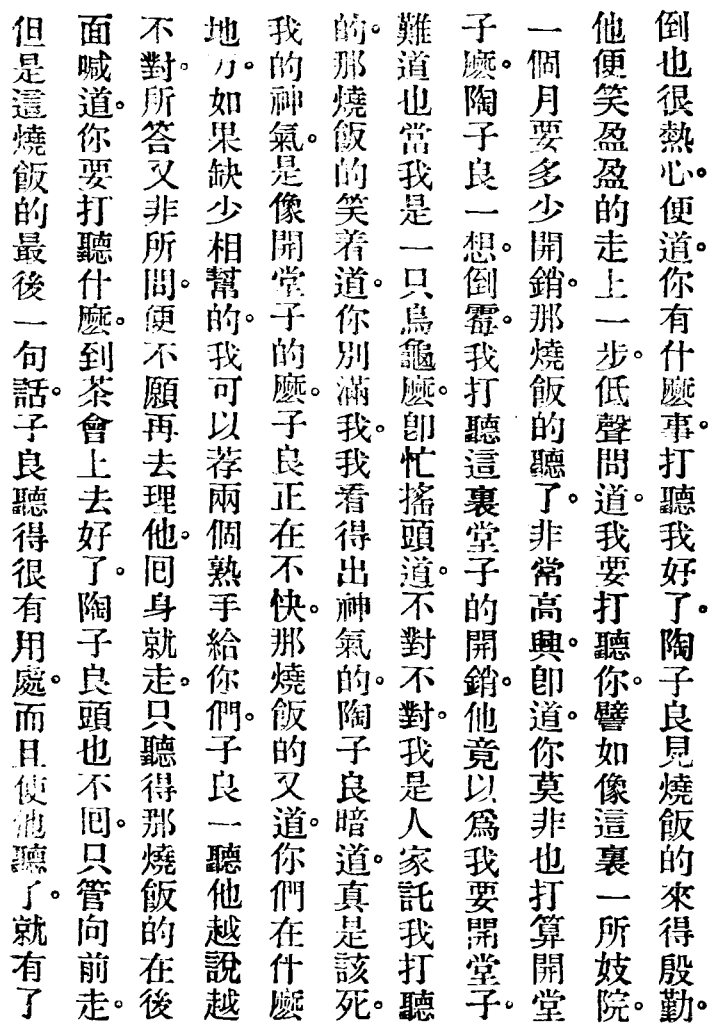 倒也很熱心。便道。你有什麽事。打聽我好了。陶子良見燒飯的來得殷勤。
他便笑盈盈的走上一步。低聲問道。我要打聽你。譬如像這裏一所妓院。
一個月要多少開銷。那燒飯的聽了。非常高興。卽道。你莫非也打算開堂
子麽。陶子良一想。倒霉。我打聽這裏堂子的開銷。他竟以爲我要開堂子。
難道也當我是一只烏龜麽。卽忙搖頭道。不對不對。我是人家託我打聽
的。那燒飯的笑着道。你別滿我。我看得出神氣的。陶子良暗道。真是該死。
我的神氣。是像開堂子的麽。子良正在不快。那燒飯的又道。你們在什麽
地方。如果缺少相幫的。我可以荐兩個熟手給你們。子良一聽他越說越
不對。所答又非所問。便不願再去理他。囘身就走。只聽得那燒飯的在後
面喊道。你要打聽什麽。到茶會上去好了。陶子良頭也不囘。只管向前走。
但是這燒飯的最後一句話。子良聽得很有用處。而且使他聽了。就有了